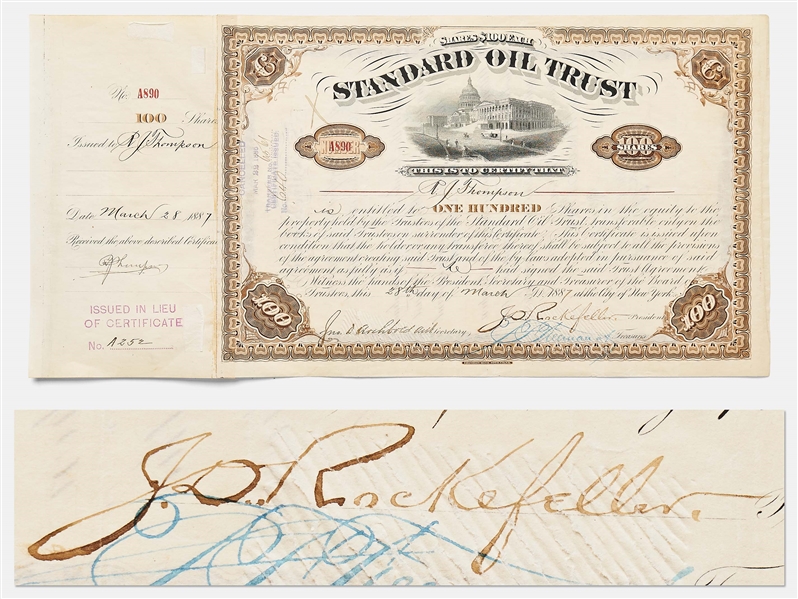 No. A890
100 Share
Issued to P. J. Thompson
Date March 28 1887
Received the above described Certificate
P. J. Thompson
ISSUED IN LIEU
OF CERTIFICATE
No. A252
SHARES $100 EACH
STANDARD OIL TRUST
A890
100
SHARES
THIS IS TO CERTIFY THAT
P. J. Thompson
is entitled to ONE HUNDRED Shares in the equity to the
property held by the Trustees of the Standard Oil Trust, transferable only on the
books of said Trustees on surrender of this Certificate. This Certificate is issued upon
condition that the holder or any transferee thereof shall be subject to all the provisions
of the agreement creating said Trust and of the by laws adopted in pursuance of said
agreement as fully as if he had signed the said Trust Agreement.
Witness the hands of the President, Secretary and Treasurer of the Board of
Trustees, this 28th day of March A.D. 1887 at the City of New York.
J. D. Rockefeller President
Jno. D. Archbold Secretary,
Treasurer
100
100
J. D. Rockefeller.